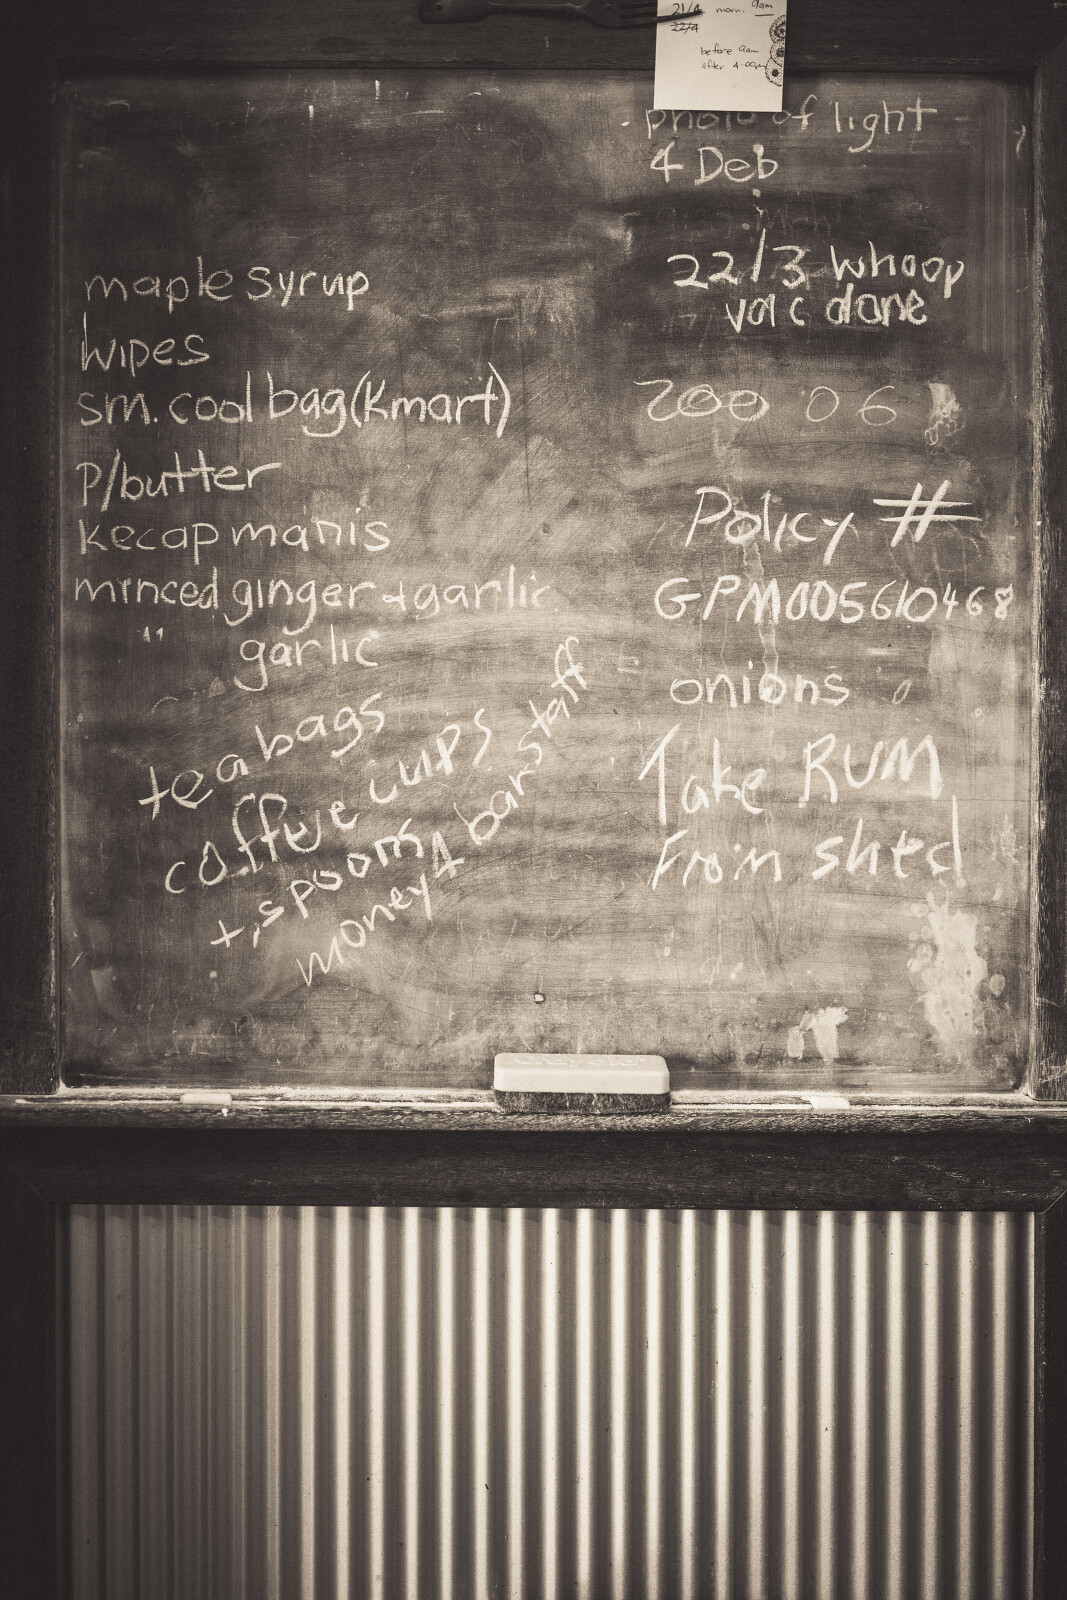 21/4 morn. 9am
22/4
before 9am
after 4.00pm
photo of light
4 Deb
22/3 whoop
vac done
maple syrup
wipes
sm. cool bag (Kmart)
P/butter
kecap manis
minced ginger + garlic
" garlic
tea bags
coffee cups
+ spoons
money 4 bar staff
200 06
Policy #
GPM005610468
onions
Take RUM
From shed